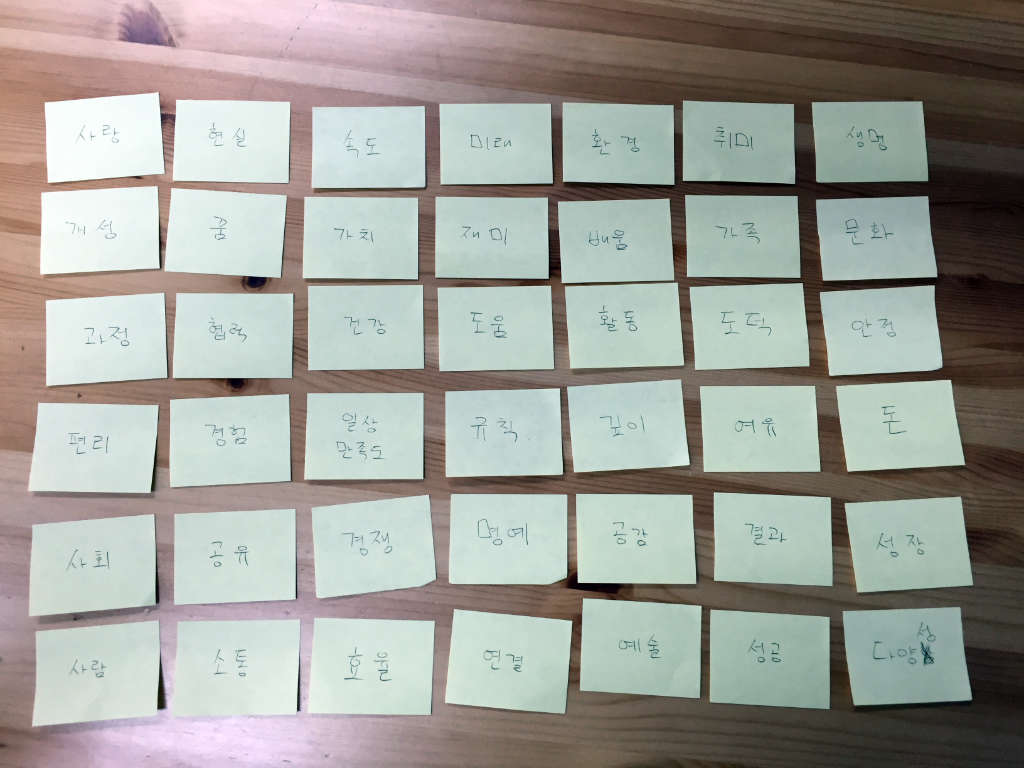 사랑 현실 속도 미래 환경 취미 생명
개성 꿈 가치 재미 배움 가족 문화
과정 협력 건강 도움 활동 도덕 안정
편리 경험 일상 만족도 규칙 깊이 여유 돈
사회 공유 경쟁 명예 공감 결과 성장
사람 소통 효율 연결 예술 성공 다양성